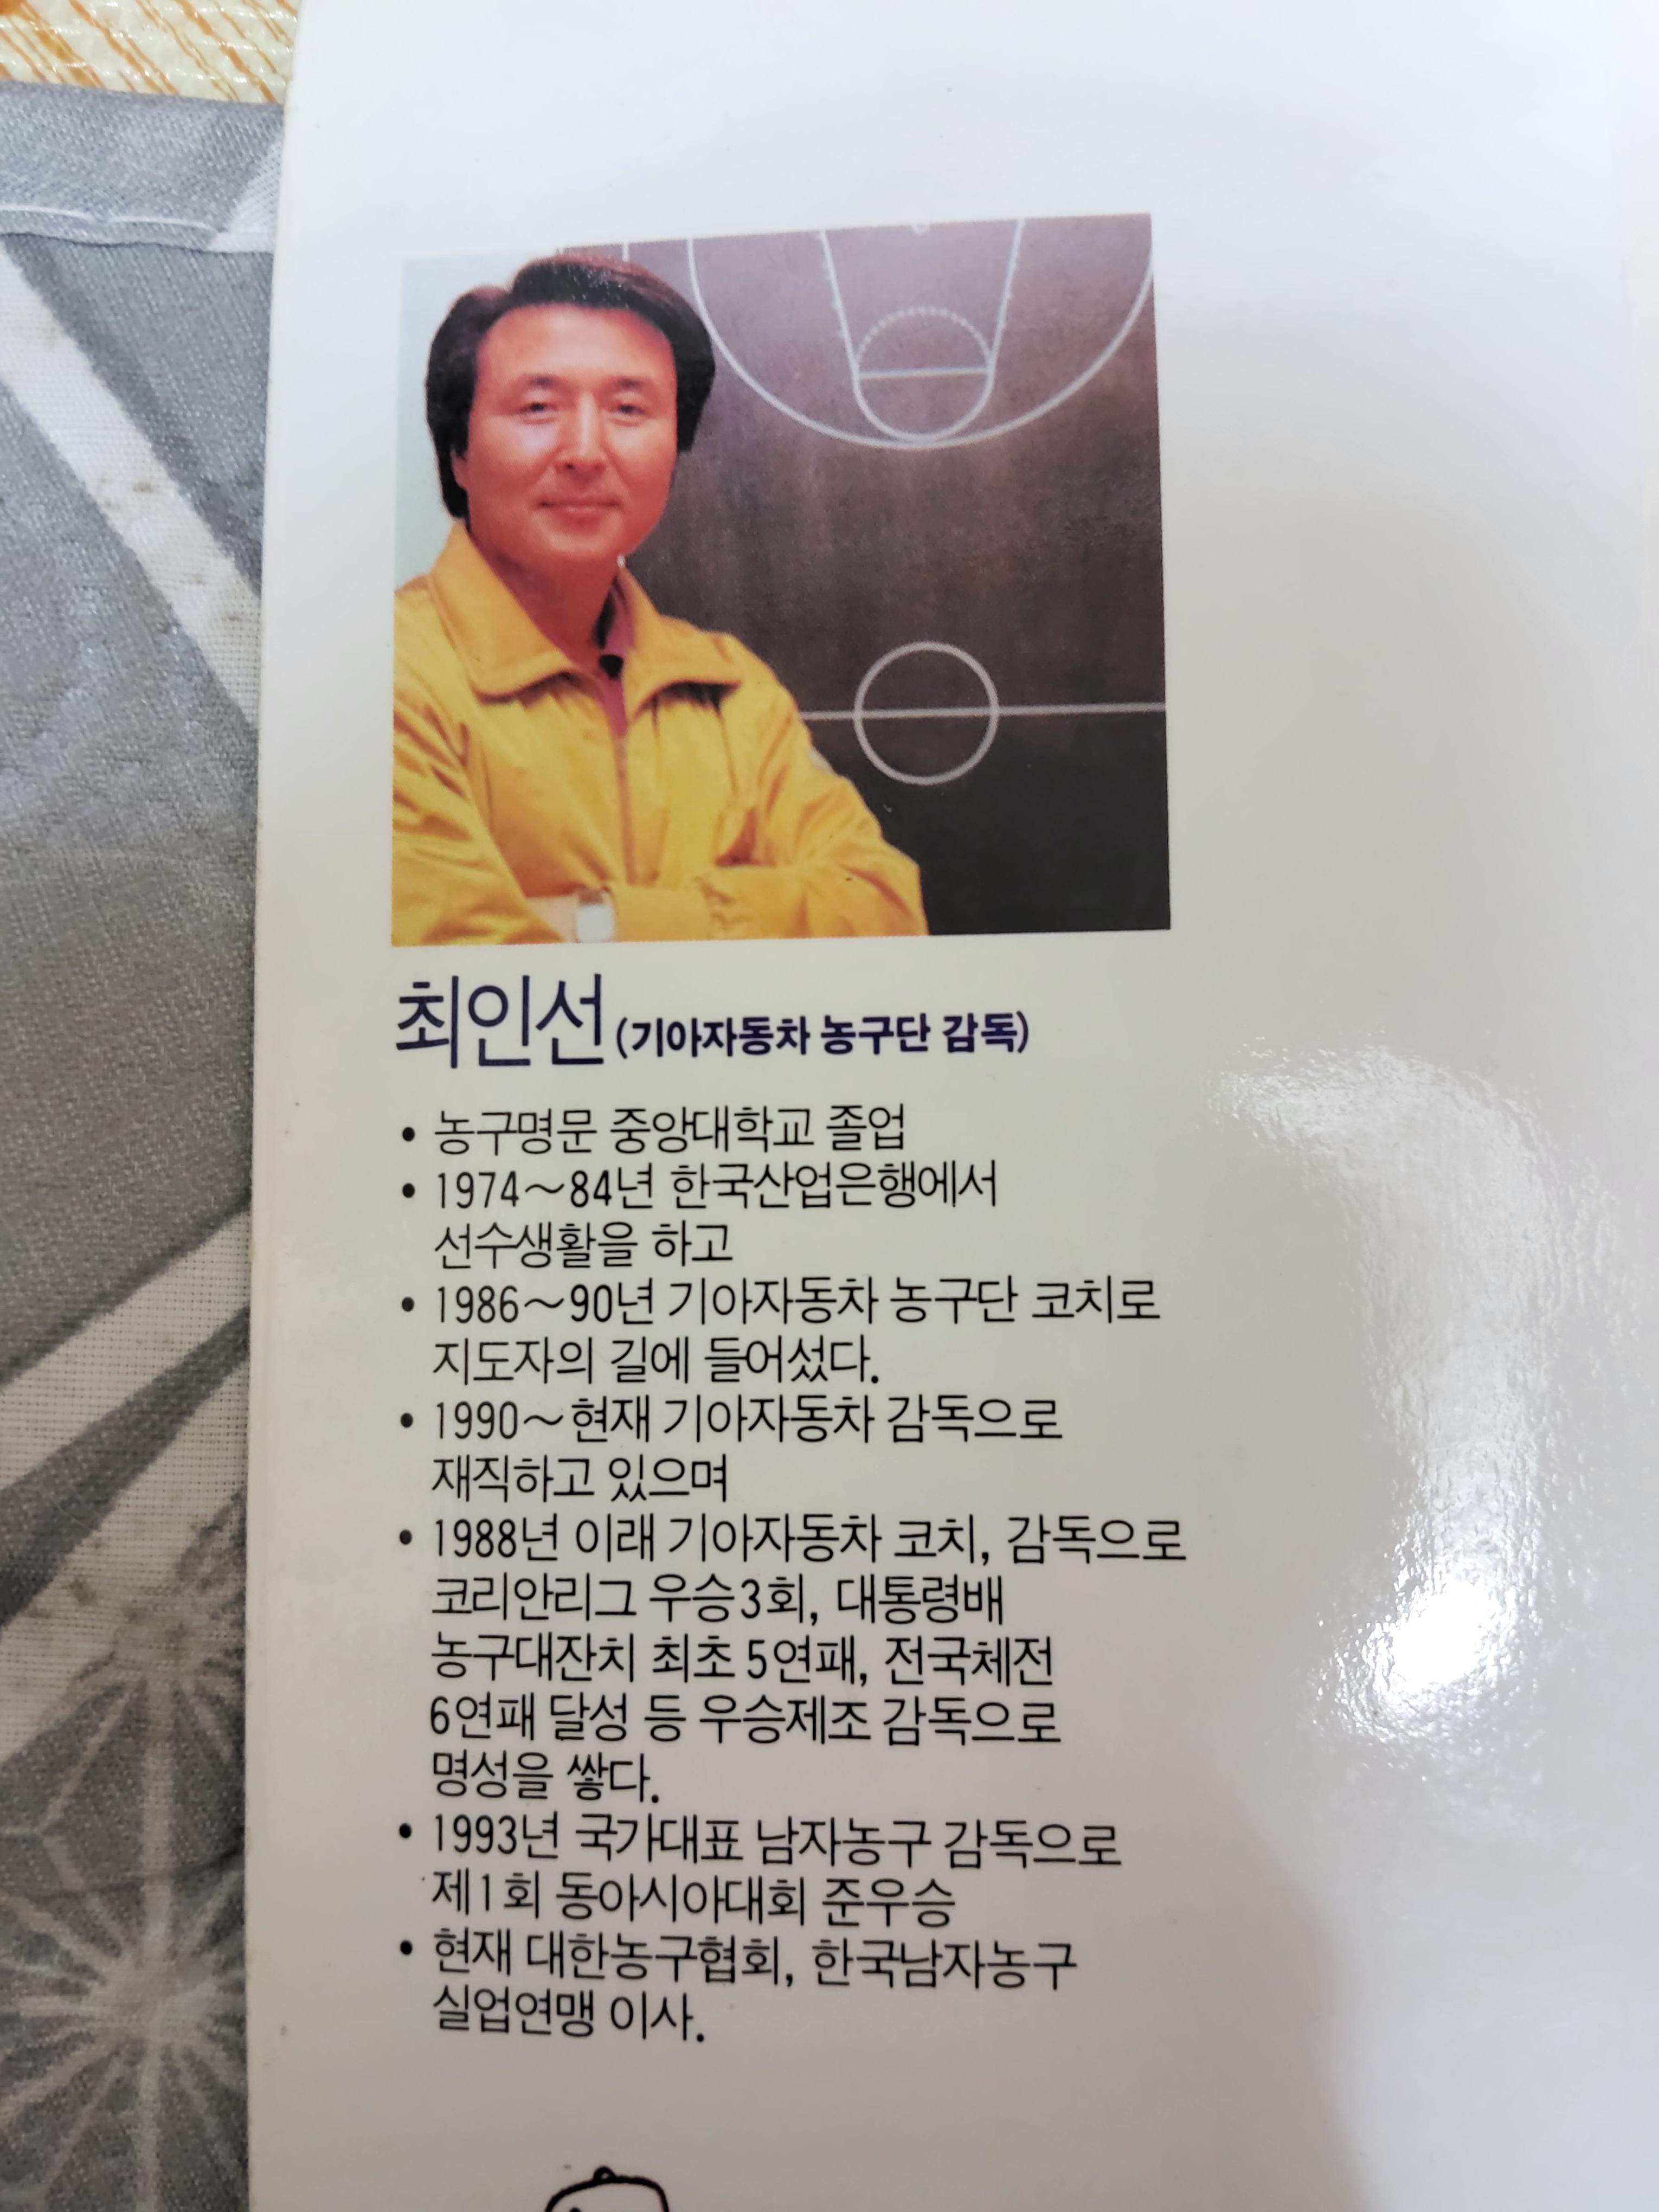 최인선(기아자동차 농구단 감독)
• 농구명문 중앙대학교 졸업
• 1974~84년 한국산업은행에서
선수생활을 하고
• 1986~90년 기아자동차 농구단 코치로
지도자의 길에 들어섰다.
• 1990~현재 기아자동차 감독으로
재직하고 있으며
• 1988년 이래 기아자동차 코치, 감독으로
코리안리그 우승3회, 대통령배
농구대잔치 최초 5연패, 전국체전
6연패 달성 등 우승제조 감독으로
명성을 쌓다.
• 1993년 국가대표 남자농구 감독으로
제1회 동아시아대회 준우승
• 현재 대한농구협회, 한국남자농구
실업연맹 이사.